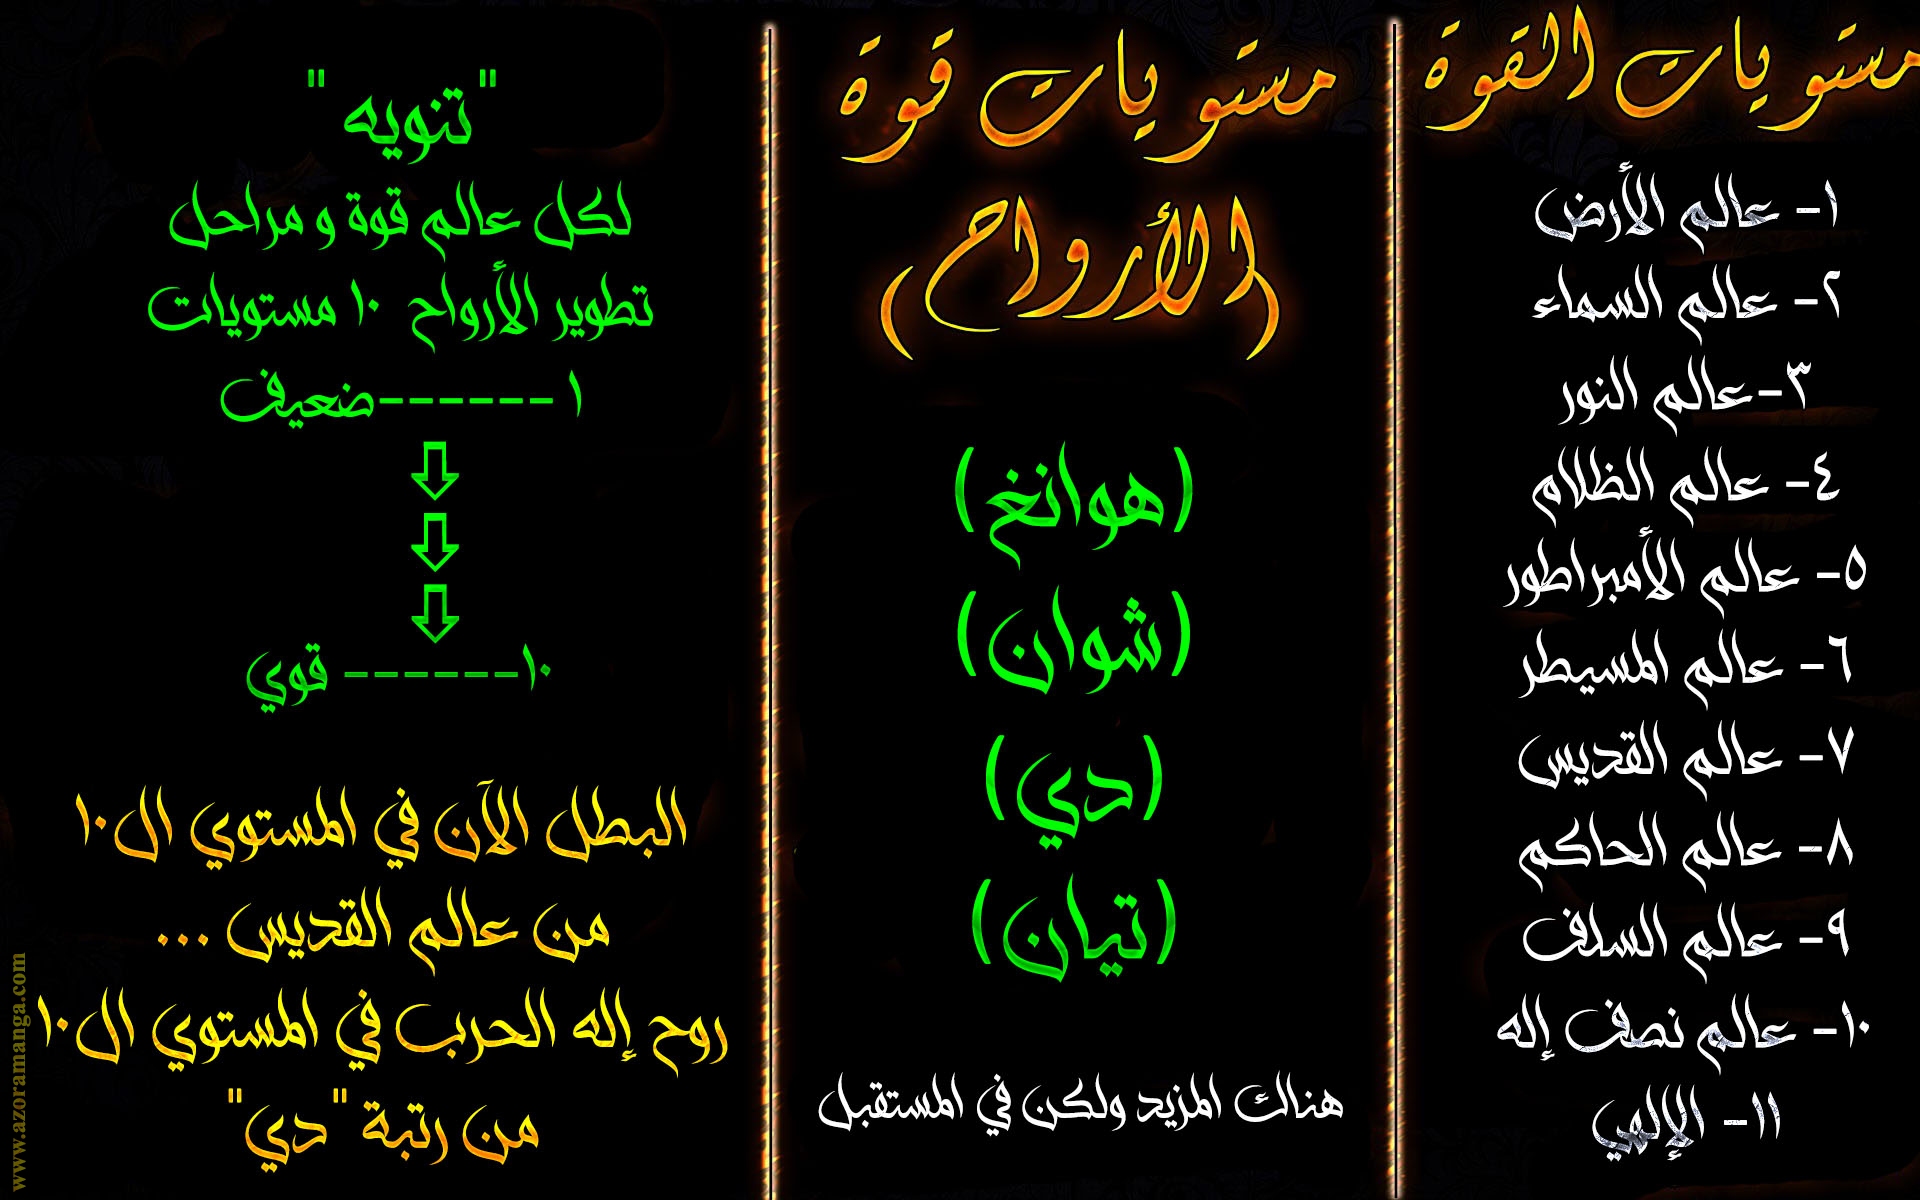 مستويات القوة
١- عالم الأرض
٢- عالم السماء
٣-عالم النور
٤- عالم الظلام
٥- عالم الأمبراطور
٦- عالم المسيطر
٧- عالم القديس
٨- عالم الحاكم
٩- عالم السلف
١٠- عالم نصف إله
١١- الإلهي
مستويات قوة
(الأرواح)
(هوانغ)
(شوان)
(دي)
(تيان)
هناك المزيد ولكن في المستقبل
"تنويه"
لكل عالم قوة و مراحل
تطوير الأرواح ١٠ مستويات
١ ------ضعيف
١٠------ قوي
البطل الآن في المستوي ال١٠
من عالم القديس ...
روح إله الحرب في المستوي ال١٠
من رتبة "دي"
www.azoramanga.com